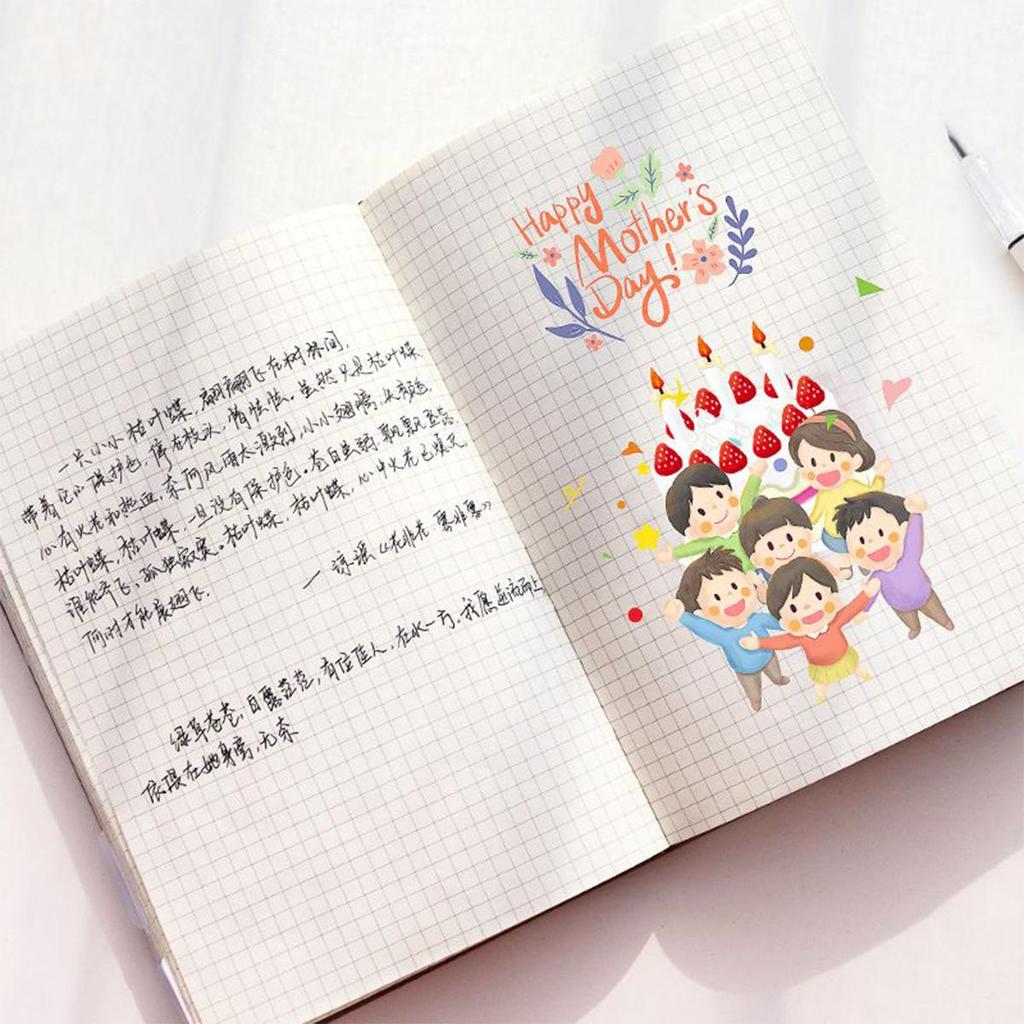 一只小小枯叶蝶，翩翩飞在树林间，
带着它的保护色，停在枝头，静悄悄。虽然只是枯叶蝶，
心有火花和热血，奈何风雨太激烈，小小翅膀，
枯叶蝶，枯叶蝶，一旦没有保护色。苍白虫弱，
谁能齐飞，孤独寂寞。枯叶蝶，枯叶蝶，心中火花已熄灭，
何时才能展翅飞。
— 《花非花 雾非雾》
绿草苍苍，白露茫茫，有位佳人，在水一方，我愿逆流而上
依偎在她身旁，无奈
Happy
Mother's
Day!